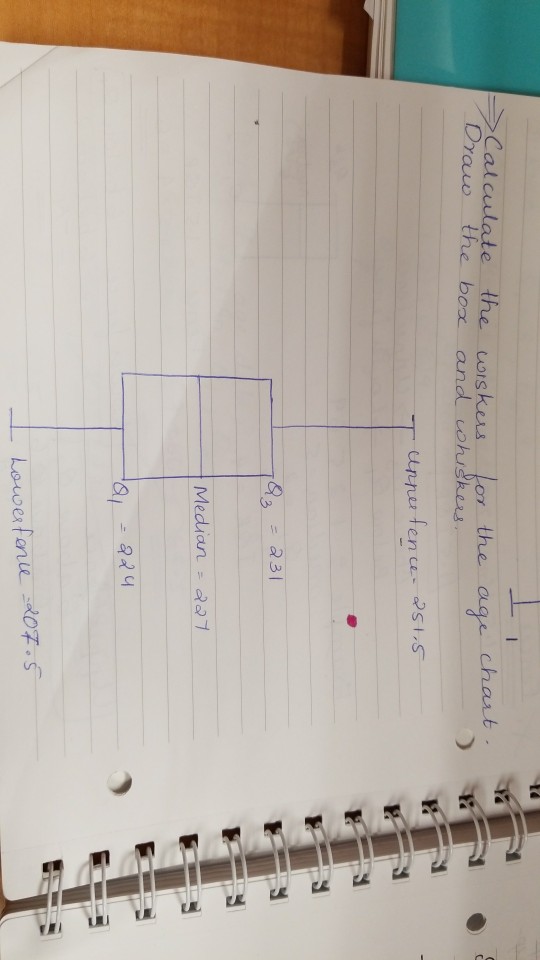 ⇒ Calculate the wiskers for the age chart.
Draw the box and whiskers.
Upperfence = 251.5
Q3 = 231
Median = 227
Q1 = 224
Lowerfence = 207.5